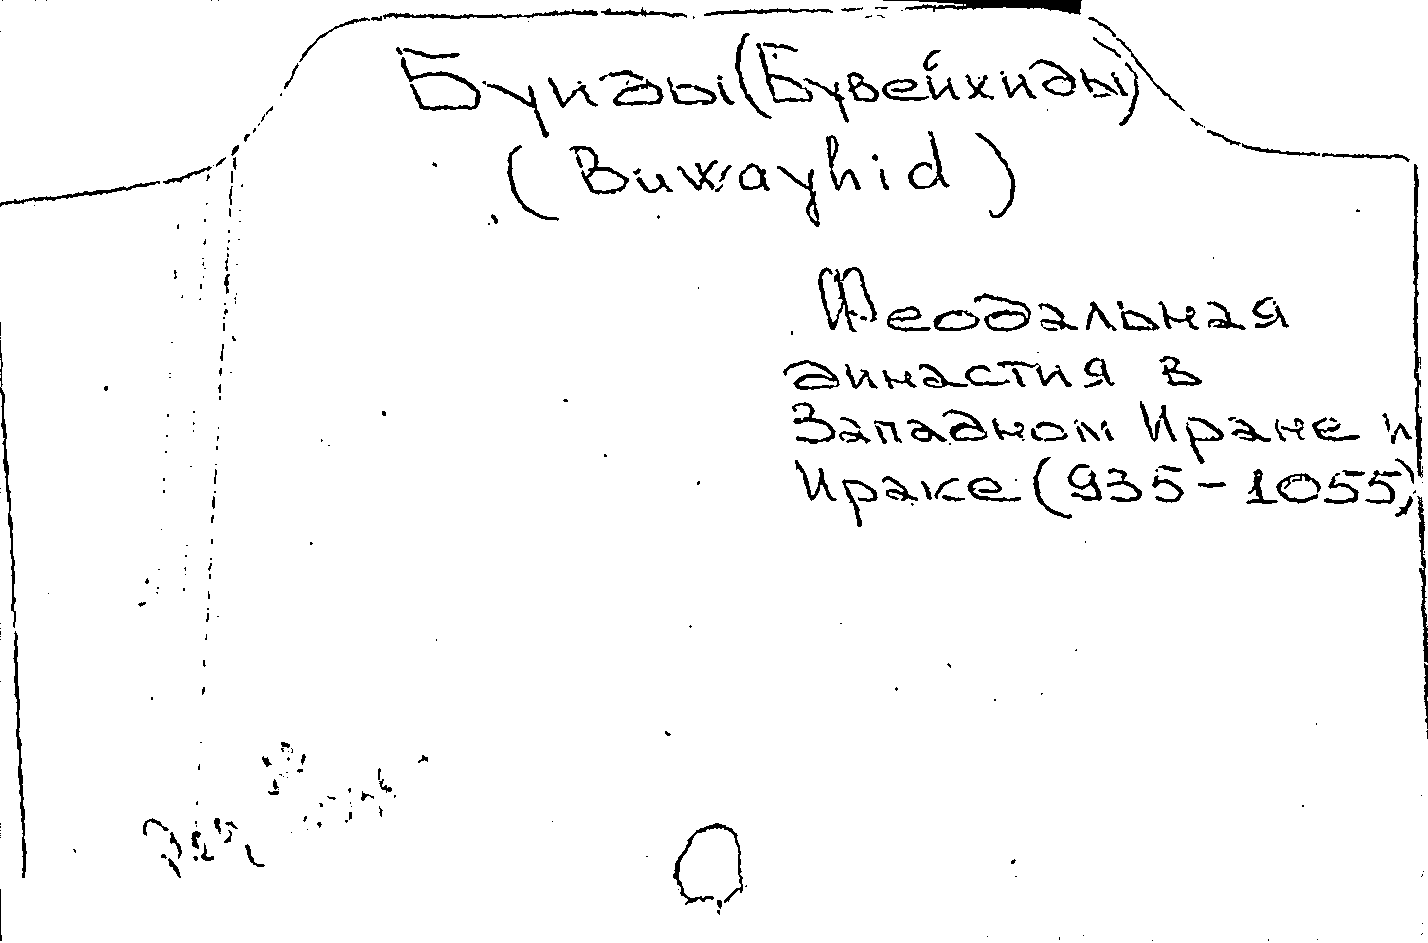 Буиды (Бувейхиды)
(Buwayhid)
Феодальная
династия в
Западном Иране и
Ираке (935-1055)